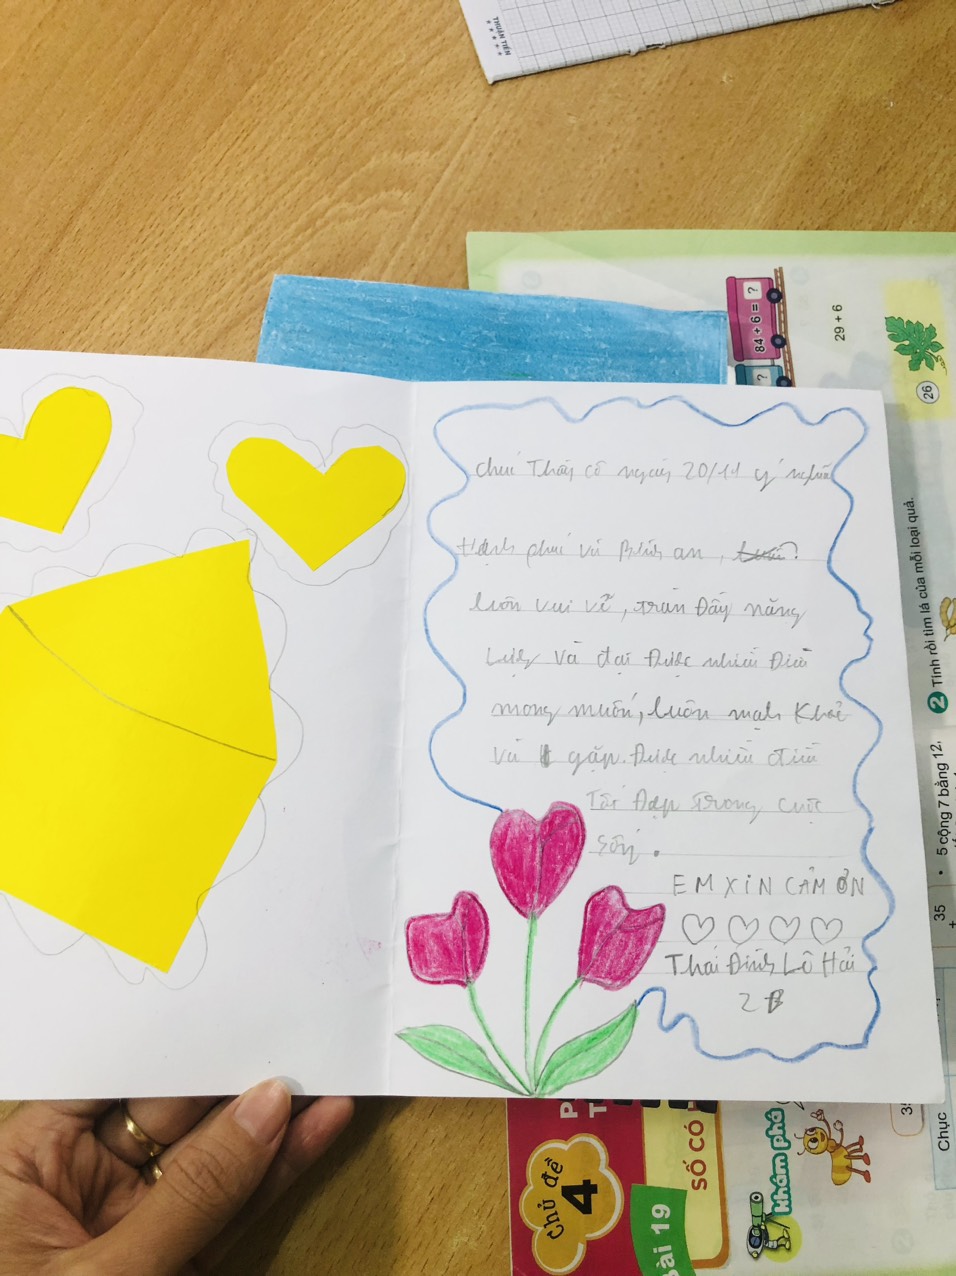 THUẬN TIẾN
84 + 6 = ?
?
29 + 6
26
2 Tính rồi tìm lá của mỗi loại quả.
chúc Thầy cô ngày 20/11 ý nghĩa
Hạnh phúc và Bình an,
luôn vui vẽ, tràn Đầy năng
Lượng và đạt Được nhiều Điều
mong muốn, luôn mạnh Khoẻ
và gặp Được nhiều điều
Tốt Đẹp Trong cuộc
sống.
EM XIN CẢM ƠN
Thái Đình Lô Hải
2B
5 cộng 7 bằng 12,
35
+
Chục
Chủ đề
4
Bài 19
số có
khám phá